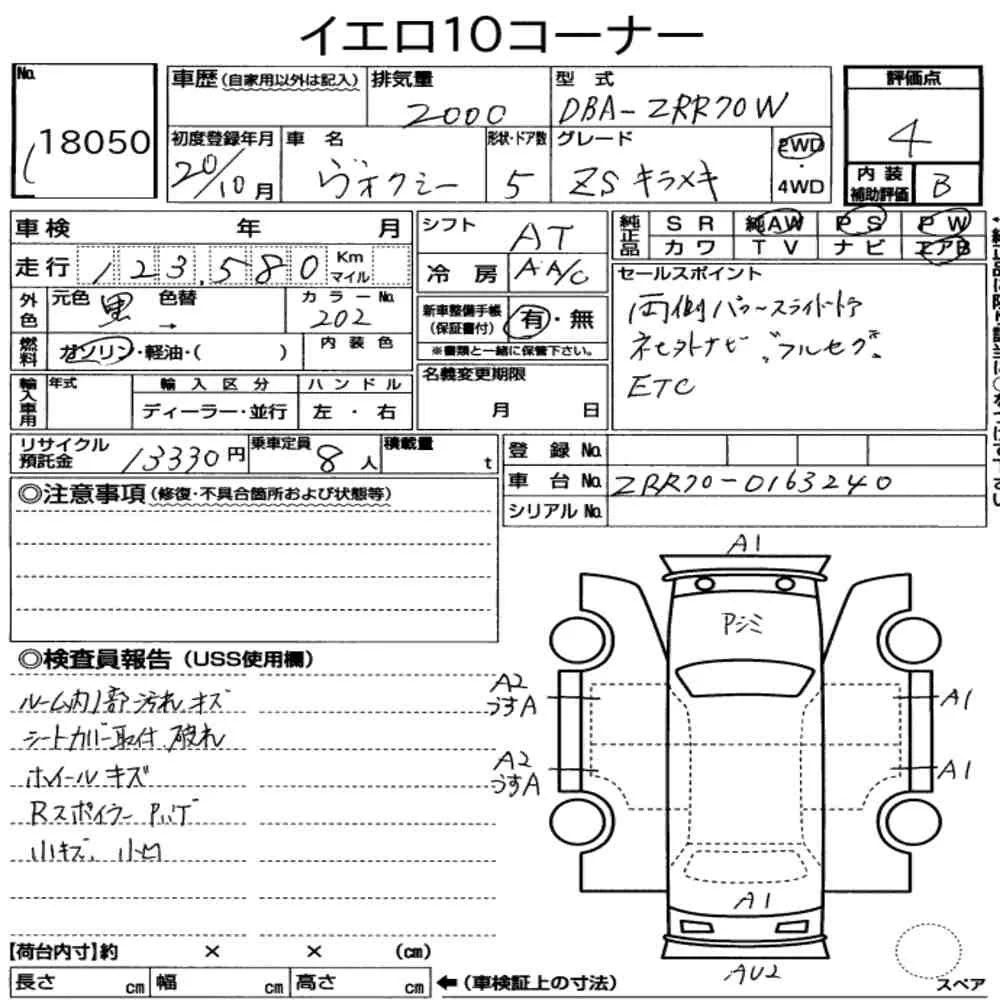 イエロ10コーナー
No.
18050
車歴(自家用以外は記入)
排気量
2000
型 式
DBA-ZRR70W
評価点
4
初度登録年月
20/10月
車 名
ヴォクシー
形状・ドア数
5
グレード
ZS キラメキ
2WD
・
4WD
内 装
補助評価
B
車検 年 月
シフト
AT
純正品
SR 純AW PS PW
カワ TV ナビ エアB
走行 123,580 Km
マイル
冷 房
AA/C
セールスポイント
両側パワースライドドア
ネセットナビ "フルセグ"
ETC
外色
元色 黒 色替
→
カラーNo.
202
新車整備手帳
(保証書付)
有・無
※書類と一緒に保管下さい。
燃料
ガソリン・軽油・( )
内 装 色
輸入車用
年式
輸 入 区 分
ディーラー・並行
ハ ン ド ル
左 ・ 右
名義変更期限
月 日
リサイクル
預託金
13330円
乗車定員
8人
積載量
t
登 録 No.
車 台 No. ZRR70-0163240
シリアル No.
◎注意事項(修復・不具合箇所および状態等)
◎検査員報告(USS使用欄)
ルーム内1部汚れ キズ
シートカバー取付 破れ
ホイール キズ
Rスポイラー P.バゲ
小キズ、小凹
A1
Pシミ
A2
うすA
A1
A2
うすA
A1
A1
AU2
スペア
【荷台内寸】約 × × (cm)
長さ cm 幅 cm 高さ cm ←(車検証上の寸法)